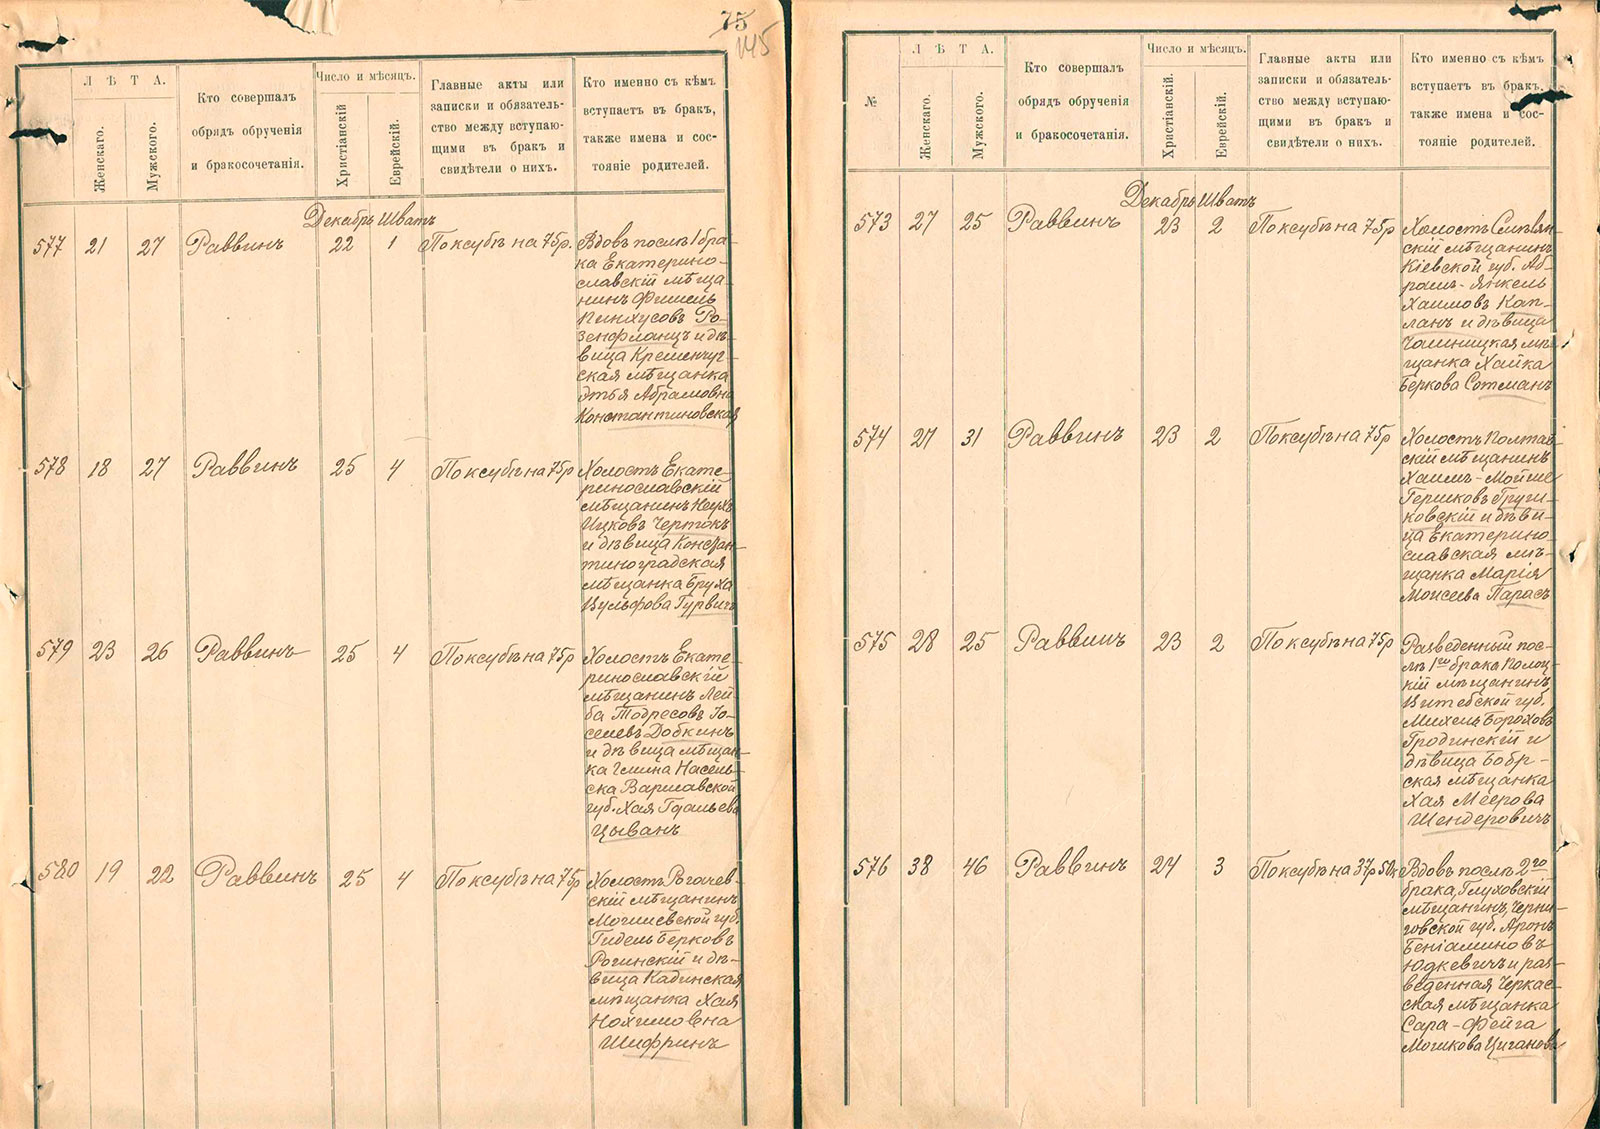 75
145
ЛѢТА.
Женскаго.
Мужского.
Кто совершалъ
обрядъ обрученія
и бракосочетанія.
Число и мѣсяцъ.
Христіанскій
Еврейскій.
Главные акты или
записки и обязатель-
ство между вступаю-
щими въ бракъ и
свидѣтели о нихъ.
Кто именно съ кѣмъ
вступаетъ въ бракъ,
также имена и сос-
тояніе родителей.
Декабрь Шватъ
577 21 27 Раввинъ 22 1 По ксубѣ на 75р.
Вдовъ послѣ 1 бра-
ка Екатерино-
славскій мѣща-
нинъ Фишель
Пинхусовъ Ро-
зенфланцъ и дѣ-
вица Кременчуг-
ская мѣщанка
Этья Абрамовна
Константиновская
578 18 27 Раввинъ 25 4 По ксубѣ на 75р
Холостъ Екате-
ринославскій
мѣщанинъ Ноухъ
Ицковъ Чертокъ
и дѣвица Констан-
тиноградская
мѣщанка Бруха
Вульфова Гурвичъ
579 23 26 Раввинъ 25 4 По ксубѣ на 75р
Холостъ Екате-
ринославскій
мѣщанинъ Лей-
ба Тодресовъ Іо-
селевъ Добкинъ
и дѣвица мѣщан-
ка Гмина Насель-
ска Варшавской
губ. Хая Гдальева
Цыванъ
580 19 22 Раввинъ 25 4 По ксубѣ на 75р
Холостъ Рогачев-
скій мѣщанинъ
Могилевской губ.
Гидель Берковъ
Рогинскій и дѣ-
вица Кадинская
мѣщанка Хая
Нохимовна
Шифринъ
№
ЛѢТА.
Женскаго.
Мужского.
Кто совершалъ
обрядъ обрученія
и бракосочетанія.
Число и мѣсяцъ.
Христіанскій.
Еврейскій.
Главные акты или
записки и обязатель-
ство между вступаю-
щими въ бракъ и
свидѣтели о нихъ.
Кто именно съ кѣмъ
вступаетъ въ бракъ,
также имена и сос-
тояніе родителей.
Декабрь Шватъ
573 27 25 Раввинъ 23 2 По ксубѣ на 75р
Холостъ Смѣлян-
скій мѣщанинъ
Кіевской губ. Аб-
рамъ-Янкель
Хаимовъ Кап-
ланъ и дѣвица
Чашницкая мѣ-
щанка Хайка
Беркова Сотманъ
574 27 31 Раввинъ 23 2 По ксубѣ на 75р
Холостъ Полтав-
скій мѣщанинъ
Хаимъ-Мойше
Гершковъ Груши-
ковскій и дѣви-
ца Екатерино-
славская мѣ-
щанка Марія
Моисеева Парасъ
575 28 25 Раввинъ 23 2 По ксубѣ на 75р
Разведенный пос-
лѣ 1го брака Полоц-
кій мѣщанинъ
Витебской губ.
Михель Бороховъ
Гродинскій и
дѣвица Бобр-
ская мѣщанка
Хая Меерова
Шендеровичъ
576 38 46 Раввинъ 24 3 По ксубѣ на 37р 50к
Вдовъ послѣ 2го
брака, Глуховскій
мѣщанинъ, Черни-
говской губ. Аронъ
Беніаминовъ
Юдкевичъ и раз-
веденная Черкас-
ская мѣщанка
Сара-Фейга
Мошкова Циганова